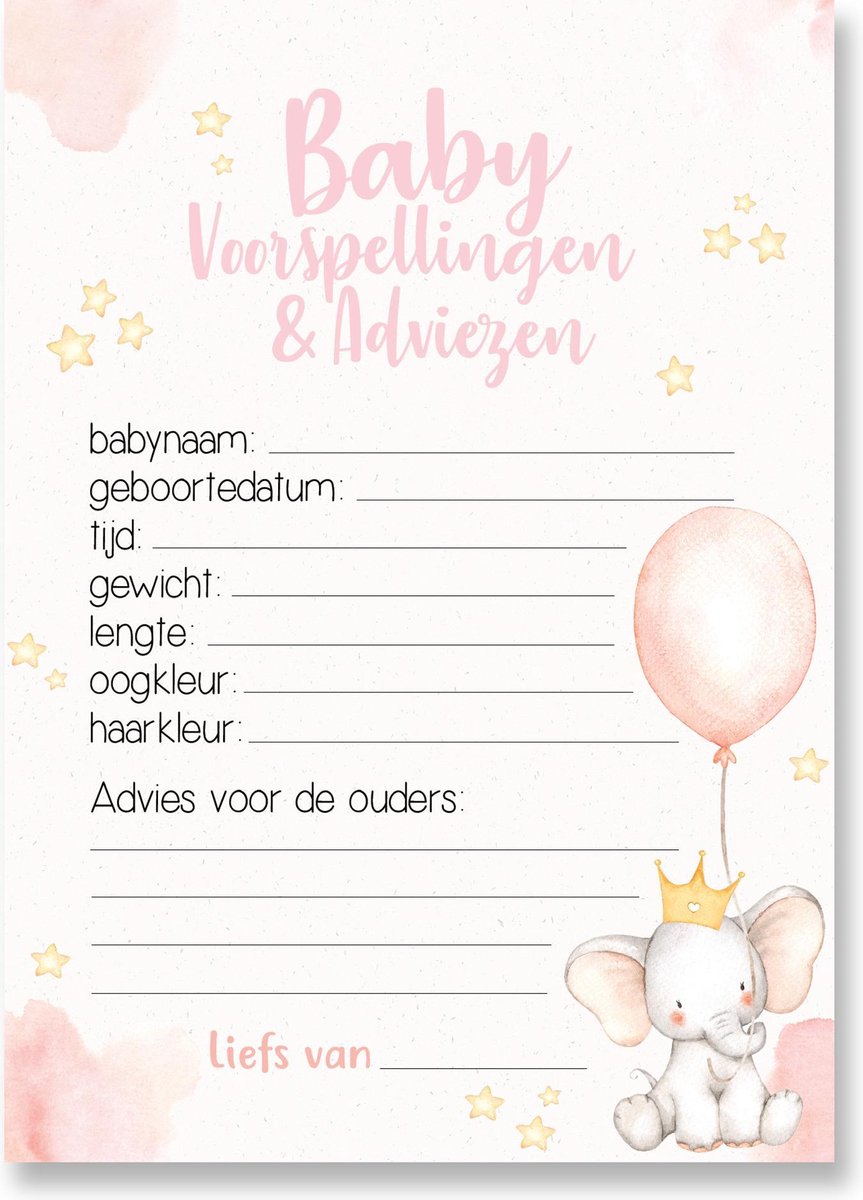 Baby
Voorspellingen
& Adviezen
babynaam:
geboortedatum:
tijd:
gewicht:
lengte:
oogkleur:
haarkleur:
Advies voor de ouders:
Liefs van